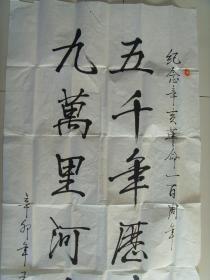 纪念辛亥革命一百周年
五千年歷
九萬里河
辛卯年